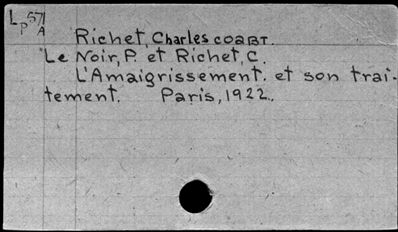 Lp571
A
Richet, Charles coaut.
Le Noir, P. et Richet, C.
L'Amaigrissement. et son trai-
tement. Paris, 1922.